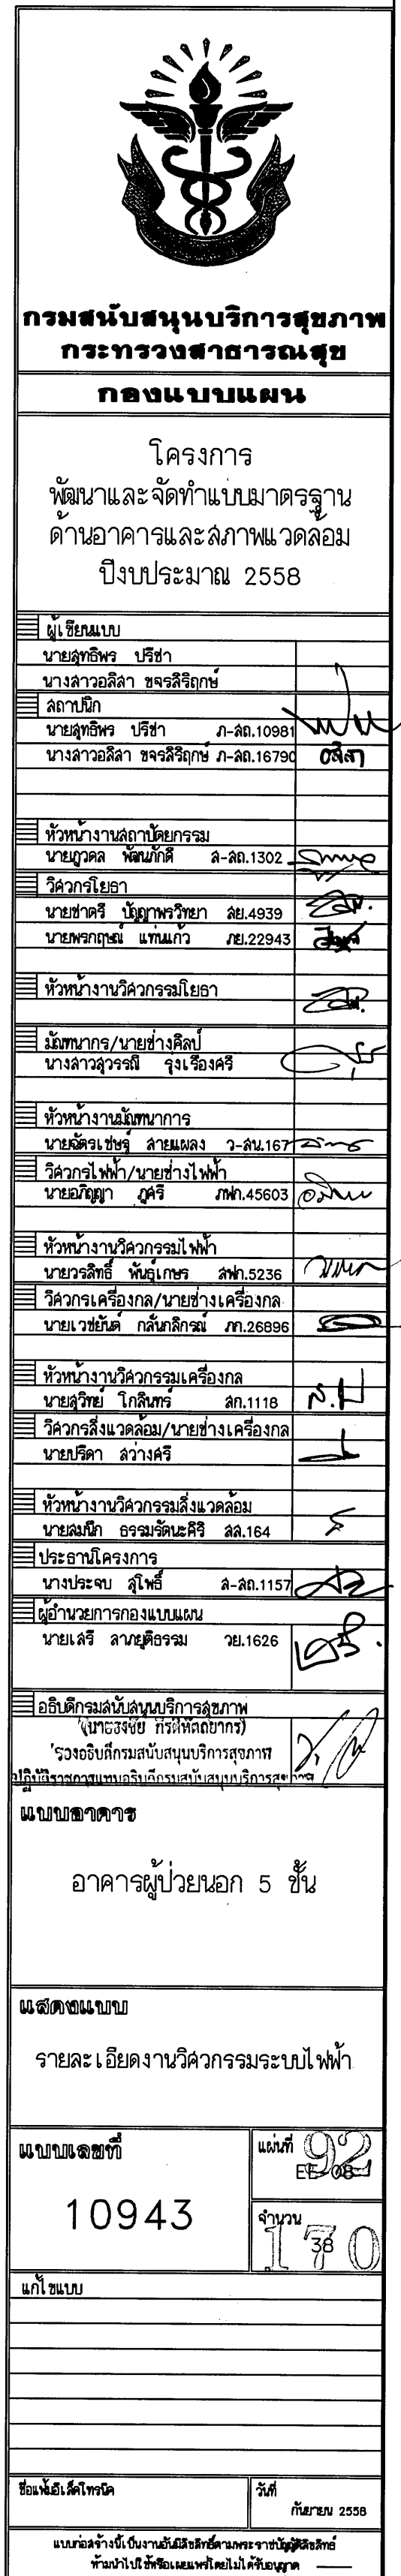 กรมสนับสนุนบริการสุขภาพ
กระทรวงสาธารณสุข
กองแบบแผน
โครงการ
พัฒนาและจัดทำแบบมาตรฐาน
ด้านอาคารและสภาพแวดล้อม
ปีงบประมาณ 2558
ผู้เขียนแบบ
นายสุทธิพร ปรีชา
นางสาวอลิสา ขจรสิริฤกษ์
สถาปนิก
นายสุทธิพร ปรีชา ภ-สถ.10981
นางสาวอลิสา ขจรสิริฤกษ์ ภ-สถ.16790 อลิสา
หัวหน้างานสถาปัตยกรรม
นายภูวดล พัฒนภักดี ส-สถ.1302
วิศวกรโยธา
นายชาตรี ปัญญาพรวิทยา สย.4939
นายพรกฤษณ์ แท่นแก้ว ภย.22943
หัวหน้างานวิศวกรรมโยธา
มัณฑนากร/นายช่างศิลป์
นางสาวสุวรรณี รุ่งเรืองศรี
หัวหน้างานมัณฑนาการ
นายฉัตรเชษฐ์ สายแผลง ว-สน.167
วิศวกรไฟฟ้า/นายช่างไฟฟ้า
นายอภิญญา ภูศรี ภฟก.45603
หัวหน้างานวิศวกรรมไฟฟ้า
นายวรสิทธิ์ พันธุ์เกษร สฟก.5236
วิศวกรเครื่องกล/นายช่างเครื่องกล
นายเวชยันต์ กลั่นกสิกรณ์ ภก.26896
หัวหน้างานวิศวกรรมเครื่องกล
นายสุวิทย์ โกสินทร์ สก.1118
วิศวกรสิ่งแวดล้อม/นายช่างเครื่องกล
นายปรีดา สว่างศรี
หัวหน้างานวิศวกรรมสิ่งแวดล้อม
นายสมนึก ธรรมรัตนะคิรี สส.164
ประธานโครงการ
นางประจบ สุโพธิ์ ส-สถ.1157
ผู้อำนวยการกองแบบแผน
นายเสรี ลาภยุติธรรม วย.1626
อธิบดีกรมสนับสนุนบริการสุขภาพ
(นายธงชัย กีรติหัตถยากร)
รองอธิบดีกรมสนับสนุนบริการสุขภาพ
ปฏิบัติราชการแทนอธิบดีกรมสนับสนุนบริการสุขภาพ
แบบอาคาร
อาคารผู้ป่วยนอก 5 ชั้น
แสดงแบบ
รายละเอียดงานวิศวกรรมระบบไฟฟ้า
แบบเลขที่
10943
แผ่นที่ 92
EE-08
จำนวน
38
170
แก้ไขแบบ
ชื่อแฟ้มอิเล็คโทรนิค
วันที่
กันยายน 2558
แบบก่อสร้างนี้เป็นงานอันมีลิขสิทธิ์ตามพระราชบัญญัติลิขสิทธิ์
ห้ามนำไปใช้หรือเผยแพร่โดยไม่ได้รับอนุญาต